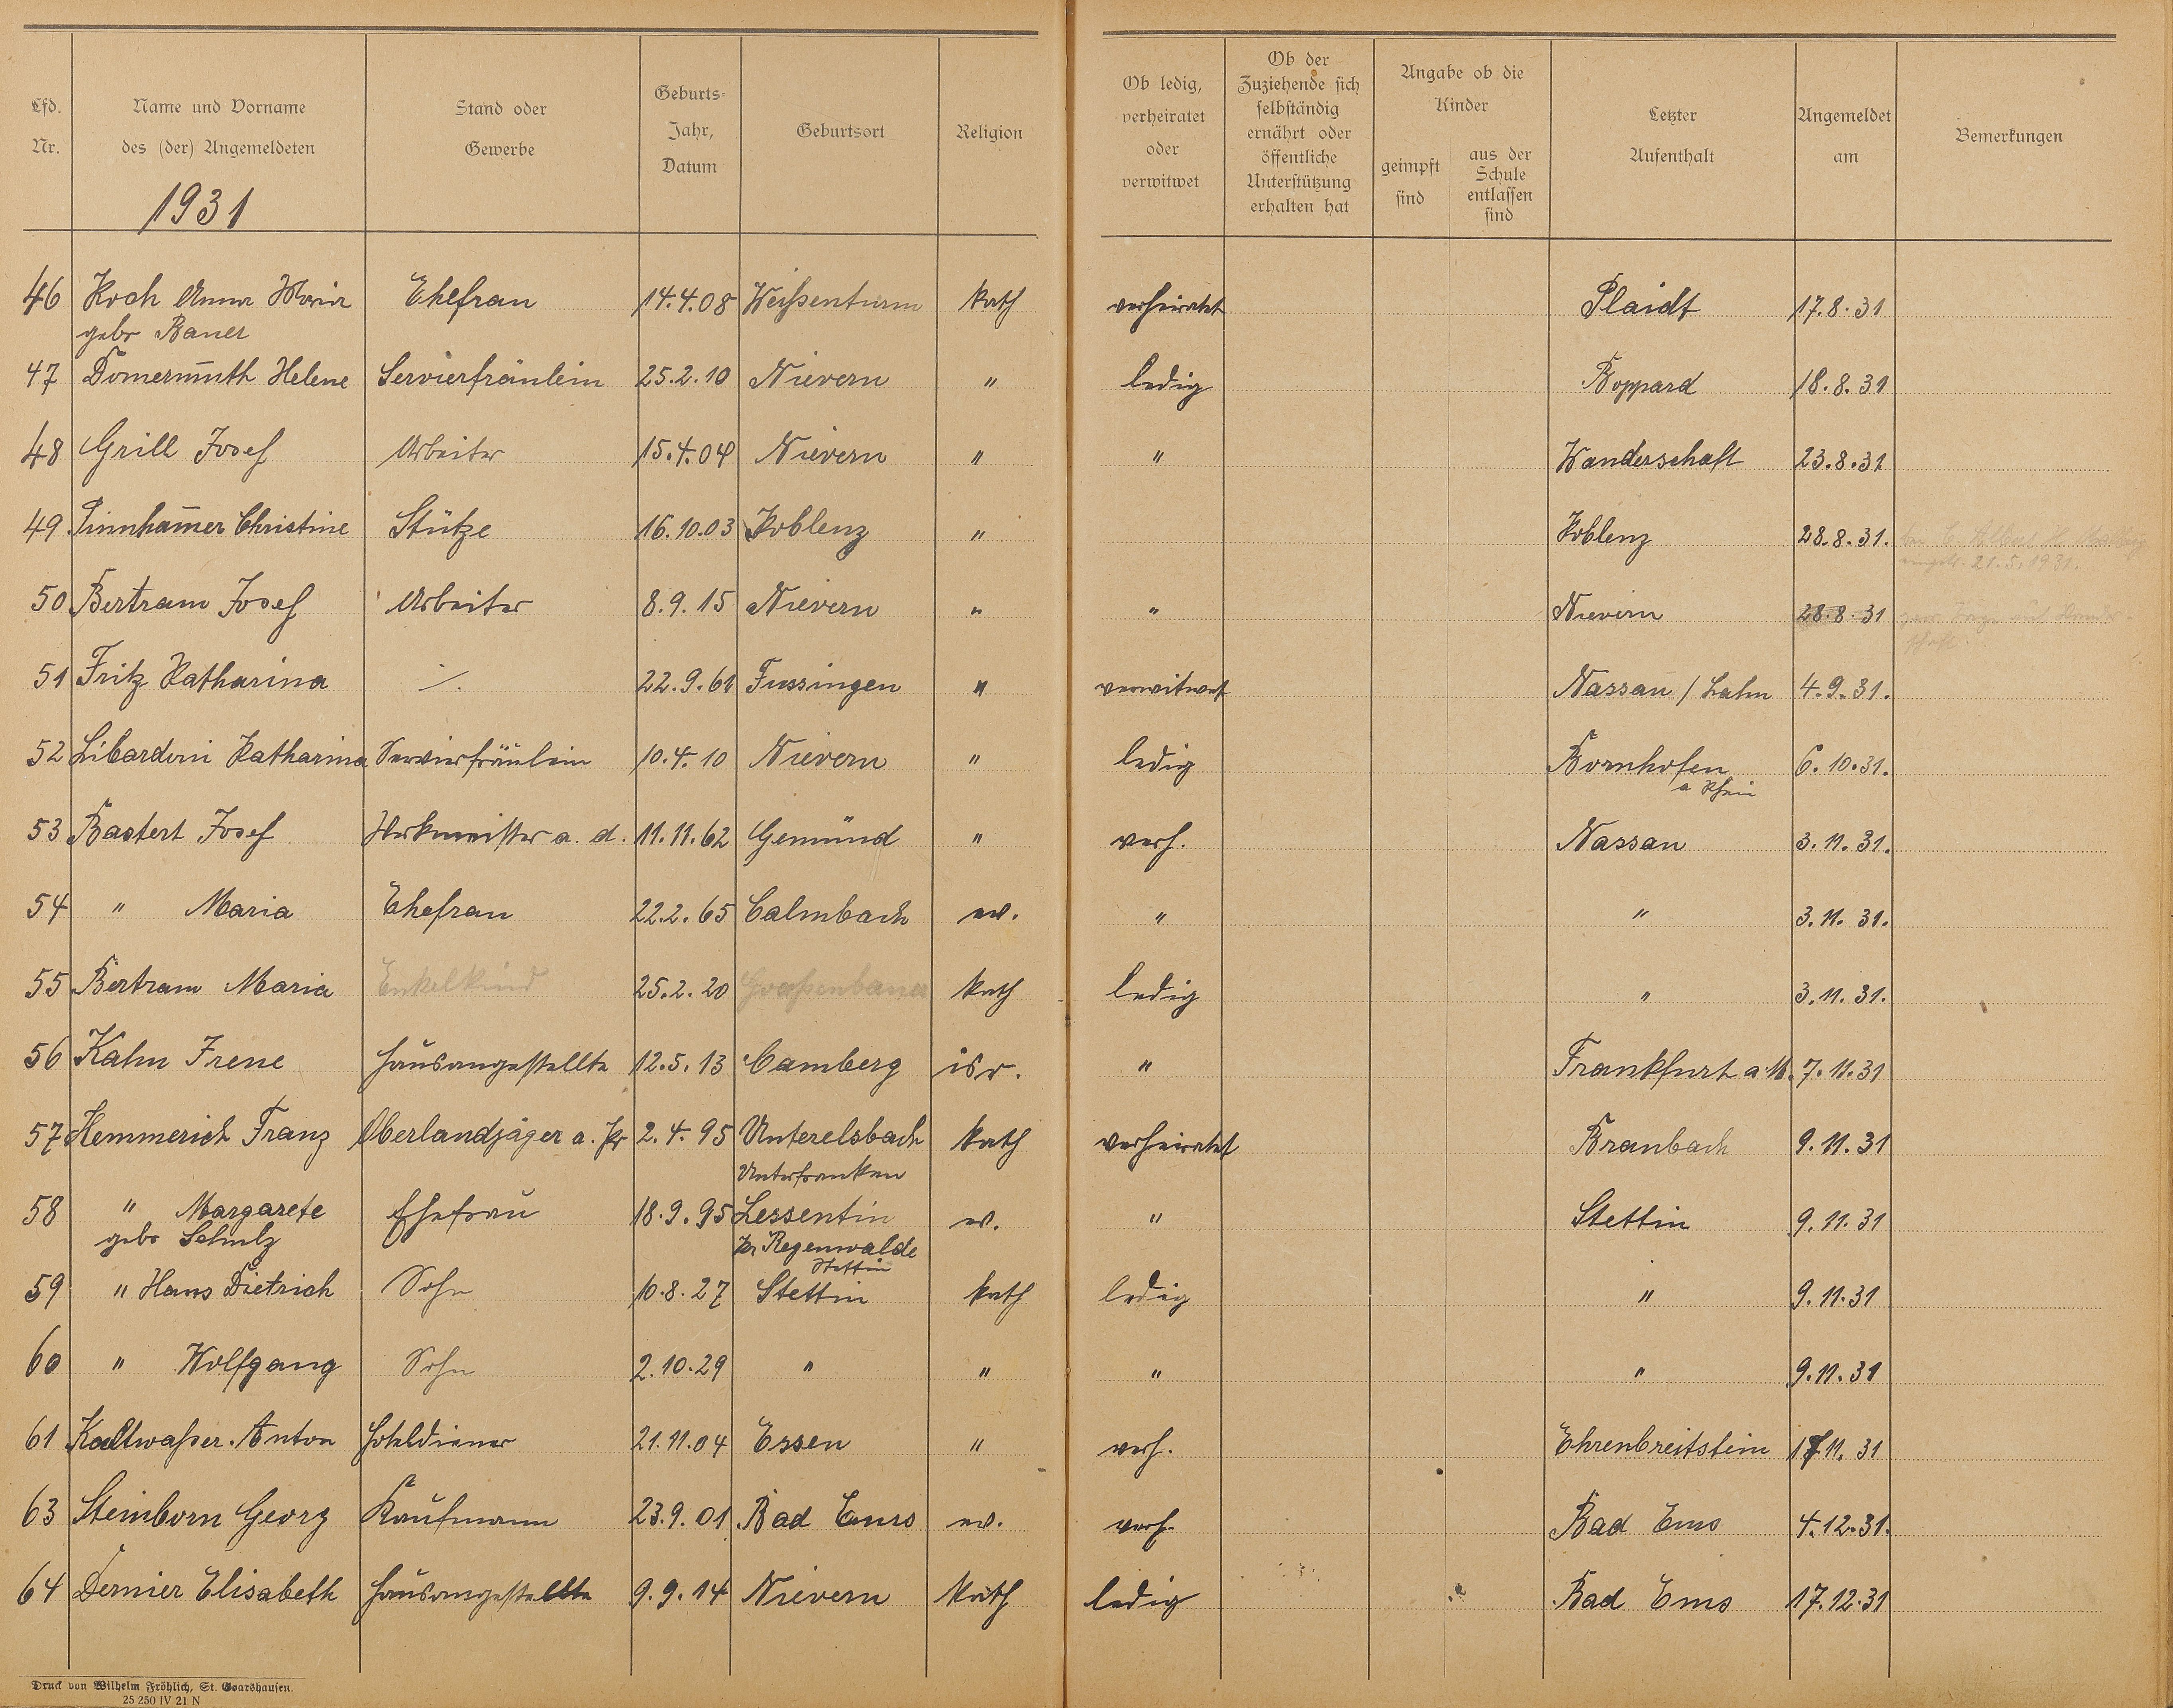 Lfd. Nr.
Name und Vorname des (der) Angemeldeten
Stand oder Gewerbe
Geburts- Jahr, Datum
Geburtsort
Religion
Ob ledig, verheiratet oder verwitwet
Ob der Zuziehende sich selbständig ernährt oder öffentliche Unterstützung erhalten hat
Angabe ob die Kinder
geimpft sind
aus der Schule entlassen sind
Letzter Aufenthalt
Angemeldet am
Bemerkungen
1931
46 Koch Anna Maria Ehefrau 14.4.08 Weißenturm kath verheiratet Plaidt 17.8.31
geb. Bauer
47 Domermuth Helene Servierfräulein 25.2.10 Nievern " ledig Boppard 18.8.31
48 Grill Josef Arbeiter 15.4.04 Nievern " " Wanderschaft 23.8.31
49. Pinnham̄er Christine Stütze 16.10.03 Koblenz " Koblenz 28.8.31.
21.5.1931.
50 Bertram Josef Arbeiter 8.9.15 Nievern " " Nievern 28.8.31
51 Fritz Katharina ./. 22.9.61 Fussingen " verwitwet Nassau / Lahn 4.9.31.
52 Libardoni Katharina Servierfräulein 10.4.10 Nievern " ledig Bornhofen 6.10.31.
a Rhein
53 Bastert Josef Werkmeister a. d. 11.11.62 Gemünd " verh. Nassau 3.11.31.
54 " Maria Ehefrau 22.2.65 Calmbach ev. " " 3.11.31.
55 Bertram Maria Enkelkind 25.2.20 kath ledig " 3.11.31.
56 Kahn Irene Hausangestellte 12.5.13 Camberg isr. " Frankfurt a M. 7.11.31
57 Hemmerich Franz Oberlandjäger a. Pr 2.4.95 Unterelsbach kath verheiratet Braubach 9.11.31
Unterfranken
58 " Margarete Ehefrau 18.9.95 Lessentin ev. " Stettin 9.11.31
geb. Schulz Kr Regenwalde
Stettin
59 " Hans Dietrich Sohn 10.8.27 Stettin kath ledig " 9.11.31
60 " Wolfgang Sohn 2.10.29 " " " " 9.11.31
61 Kaltwaßer. Anton Hoteldiener 21.11.04 Essen " verh. Ehrenbreitstein 17.11.31
63 Steinborn Georg Kaufmann 23.9.01 Bad Ems ev. verh. Bad Ems 4.12.31.
64 Dernier Elisabeth Hausangestellte 9.9.14 Nievern kath ledig Bad Ems 17.12.31
Druck von Wilhelm Fröhlich, St. Goarshausen.
25 250 IV 21 N